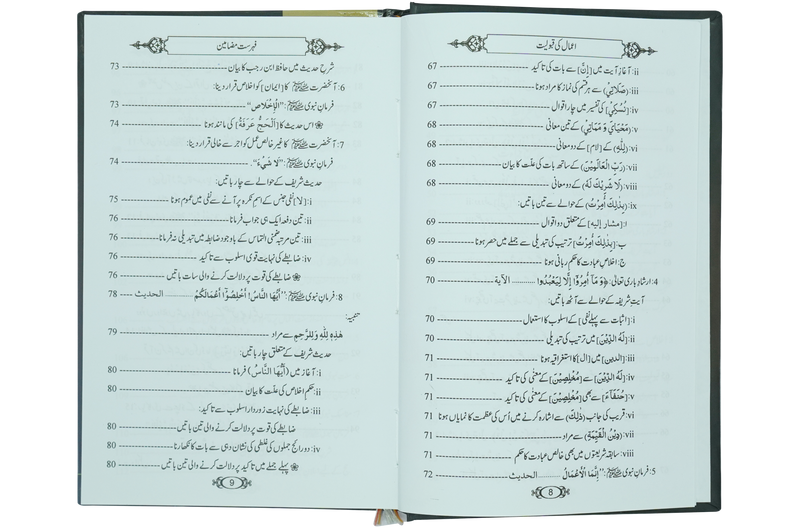 اعمال کی قبولیت
ii: آغازِ آیت میں [إِنَّ] سے بات کی تاکید 67
iii: (صَلَاتِي) سے ہر قسم کی نماز کا مراد ہونا 67
iv: [نُسُكِي] کی تفسیر میں چار اقوال 67
v: (مَحْيَايَ وَمَمَاتِي) کے تین معانی 68
vi: (لِلّٰهِ) کے [لام] کے دو معانی 68
vii: (رَبِّ الْعَالَمِيْنَ) کے ساتھ بات کی علّت کا بیان 68
viii: (لَا شَرِيْكَ لَهُ) کے دو معانی 68
ix: (بِذٰلِكَ أُمِرْتُ) کے حوالے سے تین باتیں:
ا: [مشار إليه] کے متعلق دو اقوال 69
ب: [بِذٰلِكَ أُمِرْتُ] ترتیب کی تبدیلی سے جملے میں حصر ہونا 69
ج: اخلاصِ عبادت کا حکمِ ربانی ہونا 69
4: ارشادِ باری تعالیٰ: ﴿وَمَا أُمِرُوْا إِلَّا لِيَعْبُدُوا ......... الآية 70
آیتِ شریفہ کے حوالے سے آٹھ باتیں:
i: [اثبات سے پہلے نفی] کے اسلوب کا استعمال 70
ii: [لَهُ الدِّيْنَ] میں ترتیب کی تبدیلی 70
iii: [الدين] میں [ال] کا استغراقیہ ہونا 71
iv: [لَهُ الدِّيْنَ] سے [مُخْلِصِيْنَ] کے معنی کی تاکید 71
v: [حُنَفَآءَ] سے بھی [مُخْلِصِيْنَ] کے معنی کی تاکید 71
vi: قریب کی جانب (ذٰلِكَ) سے اشارہ کرنے میں اُس کی عظمت کا نمایاں ہونا 71
vii: (دِيْنُ الْقَيِّمَةِ) سے مراد 71
viii: سابقہ شریعتوں میں بھی خالص عبادت کا حکم 71
5: فرمانِ نبوی ﷺ: "إِنَّمَا الْأَعْمَالُ ......... الحديث 72
8
فہرست مضامین
شرح حدیث میں حافظ ابن رجب کا بیان 73
6: آنحضرت ﷺ کا [ایمان] کو اخلاص قرار دینا:
فرمانِ نبوی ﷺ: "الْإِخْلَاص" 73
❀ اس حدیث کا [اَلْحَجُّ عَرَفَةُ] کی مانند ہونا 74
7: آنحضرت ﷺ کا غیر خالص عمل کو اجر سے خالی قرار دینا:
فرمانِ نبوی ﷺ: "لَا شَيْءَ" 74
حدیث شریف کے حوالے سے چار باتیں:
i: [لا] نفی جنس کے اسمِ نکرہ پر آنے سے نفی میں عموم ہونا 75
ii: تین دفعہ ایک ہی جواب فرمانا 76
iii: تین مرتبہ ضمنی التماس کے باوجود ضابطہ میں تبدیلی نہ فرمانا 76
iv: ضابطے کی نہایت قوی اسلوب سے تاکید 76
❀ ضابطے کی قوت پر دلالت کرنے والی سات باتیں 76
8: فرمانِ نبوی ﷺ: "أَيُّهَا النَّاسُ! أَخْلِصُوْا أَعْمَالَكُمْ ......... الحديث 78
تنبیہ:
هٰذِهِ لِلّٰهِ وَلِلرَّحِمِ سے مراد 79
حدیث شریف کے متعلق چار باتیں:
i: آغاز میں (أَيُّهَا النَّاسُ) فرمانا 80
ii: حکمِ اخلاص کی علّت کا بیان 80
iii: ضابطے کی نہایت زوردار اسلوب سے تاکید:
ضابطے کی قوت پر دلالت کرنے والی تین باتیں 80
iv: دو رائج جملوں کی غلطی کی نشان دہی سے بات کا نکھارنا 80
❀ پہلے جملے میں تاکید پر دلالت کرنے والی تین باتیں 80
9